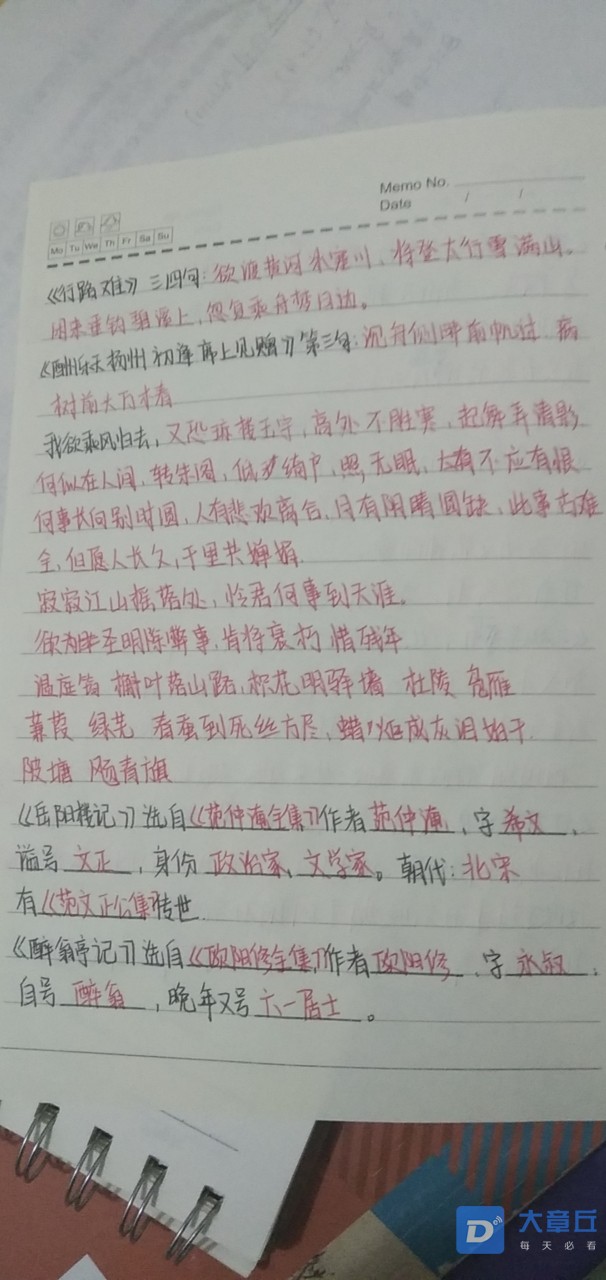 Memo No.
Date / /
Mo Tu We Th Fr Sa Su
《行路难》三四句:欲渡黄河冰塞川,将登太行雪满山。
闲来垂钓碧溪上,忽复乘舟梦日边。
《酬乐天扬州初逢席上见赠》第三句:沉舟侧畔千帆过,病
树前头万木春
我欲乘风归去,又恐琼楼玉宇,高处不胜寒,起舞弄清影
何似在人间,转朱阁,低绮户,照无眠,不应有恨
何事长向别时圆,人有悲欢离合,月有阴晴圆缺,此事古难
全,但愿人长久,千里共婵娟.
寂寂江山摇落处,怜君何事到天涯。
欲为圣明除弊事,肯将衰朽惜残年
温庭筠 槲叶落山路,枳花明驿墙 杜陵 凫雁
蒹葭 绿芜 春蚕到死丝方尽,蜡炬成灰泪始干.
陂塘 飏青旗
《岳阳楼记》选自《范仲淹全集》作者范仲淹,字希文,
谥号文正,身份政治家、文学家。朝代:北宋
有《范文正公集》传世.
《醉翁亭记》选自《欧阳修全集》作者欧阳修,字永叔,
自号醉翁,晚年又号六一居士。
大章丘
每天必看